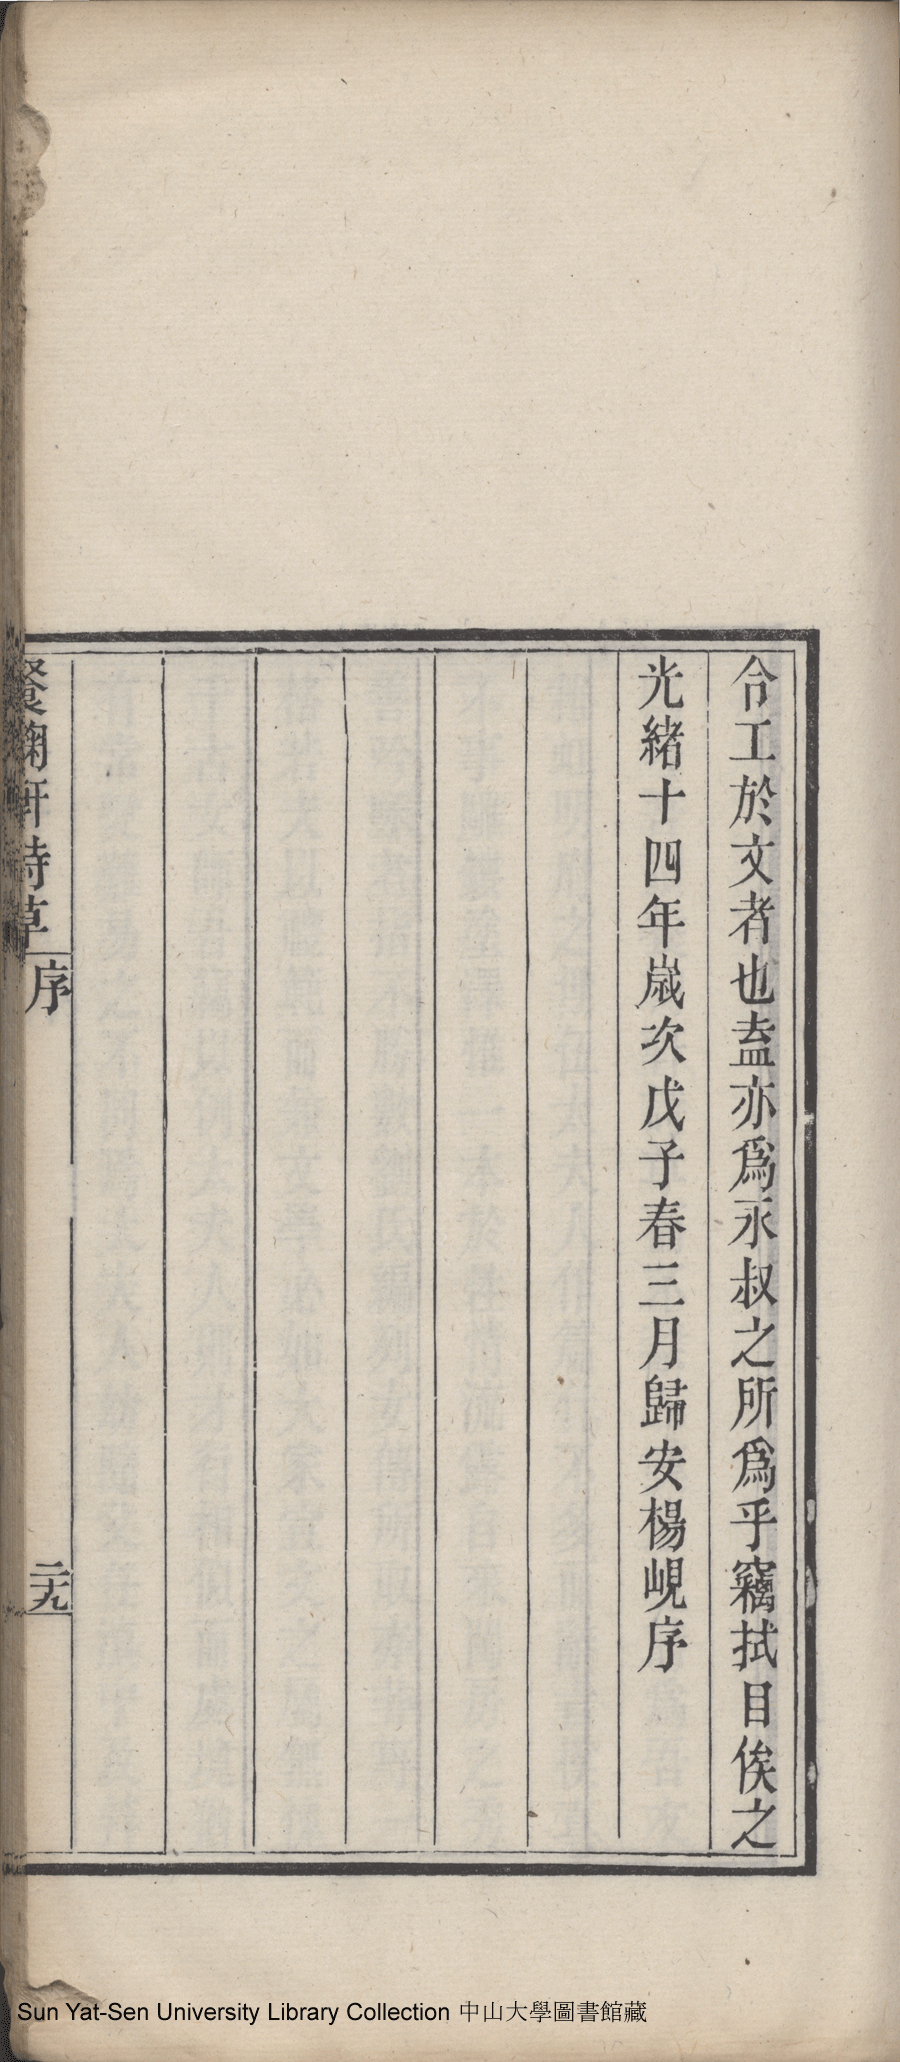 令工於文者也盍亦爲永叔之所爲乎竊拭目俟之
光緒十四年歲次戊子春三月歸安楊峴序
餐菊軒詩草
序
二十九
Sun Yat-Sen University Library Collection 中山大學圖書館藏